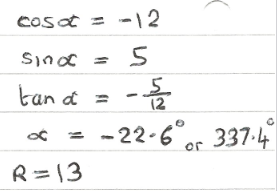 cosα = -12
sinα = 5
tan α = - 5/12
α = -22.6° or 337.4°
R = 13